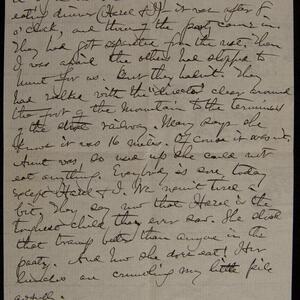 eating dinner (Hazel & I). it was after 8
o'clock, and through the party came in.
They had got separated from the rest. Then
I was afraid the others had stopped to
hunt for us. But they hadn't. They
had walked with the "director" clear around
the foot of the Mountain to the terminus
of the railway. Mary says she
knows it was 16 miles. Of course it wasn't.
Aunt was so used up she could not
eat anything. Everybody is sore today
except Hazel & I. We wasn't tired a
bit. They say now that Hazel is the
toughest child they ever saw. She stood
that tramp better than anyone in the
party. And how she does eat! Her
lunches are crunching my little pile